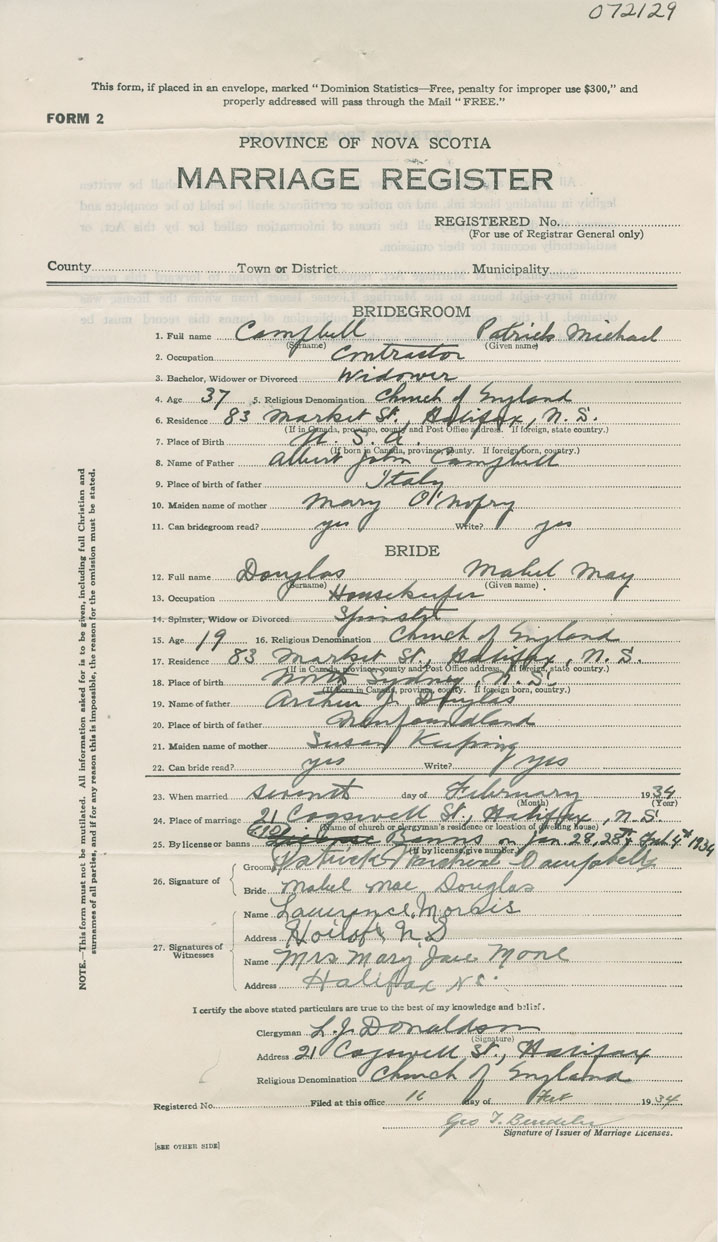 072129
This form, if placed in an envelope, marked "Dominion Statistics—Free, penalty for improper use $300," and
properly addressed will pass through the Mail "FREE."
FORM 2
PROVINCE OF NOVA SCOTIA
MARRIAGE REGISTER
REGISTERED No.
(For use of Registrar General only)
County Town or District Municipality
BRIDEGROOM
1. Full name Campbell Patrick Michael
(Surname) (Given name)
2. Occupation Contractor
3. Bachelor, Widower or Divorced Widower
4. Age 37 5. Religious Denomination Church of England
6. Residence 83 Market St., Halifax, N. S.
(If in Canada, province, county and Post Office address. If foreign, state country.)
7. Place of Birth U. S. A.
(If born in Canada, province, county. If foreign born, country.)
8. Name of Father Albert John Campbell
9. Place of birth of father Italy
10. Maiden name of mother Mary
11. Can bridegroom read? yes Write? yes
BRIDE
12. Full name Douglas Mabel May
(Surname) (Given name)
13. Occupation Housekeeper
14. Spinster, Widow or Divorced Spinster
15. Age 19 16. Religious Denomination Church of England
17. Residence 83 Market St., Halifax, N. S.
(If in Canada, province, county and Post Office address. If foreign, state country.)
18. Place of birth North Sydney, N. S.
(If born in Canada, province, county. If foreign born, country.)
19. Name of father Arthur J. Douglas
20. Place of birth of father Newfoundland
21. Maiden name of mother Susan Keeping
22. Can bride read? yes Write? yes
23. When married seventh day of February 1934
(Month) (Year)
24. Place of marriage 21 Cogswell St., Halifax, N. S.
(Name of church or clergyman's residence or location of dwelling house)
25. By license or banns Banns on Jan 28, 28th & Feb 4th 1934
(If by license, give number)
26. Signature of Groom Patrick Michael Campbell
Bride Mabel Mae Douglas
27. Signatures of Witnesses Name Lawrence Morris
Address N S
Name Mrs Mary Jane
Address Halifax NS.
I certify the above stated particulars are true to the best of my knowledge and belief.
Clergyman L. J. Donaldson
(Signature)
Address 21 Cogswell St., Halifax
Religious Denomination Church of England
Registered No. Filed at this office 16 day of Feb 1934
Geo T.
Signature of Issuer of Marriage Licenses.
[SEE OTHER SIDE]
NOTE.—This form must not be mutilated. All information asked for is to be given, including full Christian and
surnames of all parties, and if for any reason this is impossible, the reason for the omission must be stated.